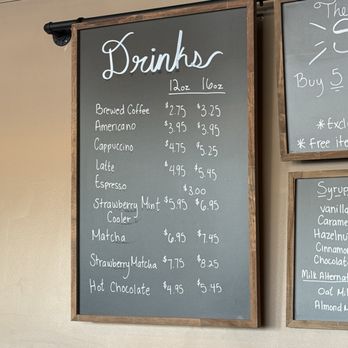 Drinks
12oz 16oz
Brewed Coffee $2.75 $3.25
Americano $3.95 $3.95
Cappuccino $4.75 $5.25
Latte $4.95 $5.45
Espresso $3.00
Strawberry Mint $5.95 $6.95
Cooler
Matcha $6.95 $7.45
Strawberry Matcha $7.75 $8.25
Hot Chocolate $4.95 $5.45
The
Buy 5
*Excl
* Free ite
Syrup
Vanilla
Carame
Hazelnu
Cinnamo
Chocolat
Milk Alternat
Oat Mil
Almond M